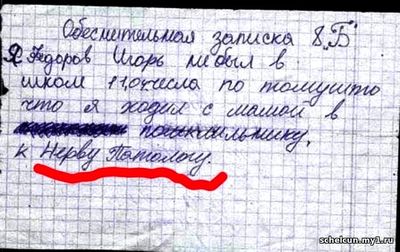 Обеснительная записка 8"Б"
Я Федоров Игорь не был в
школ 11,0 числа по томушто
что я ходил с мамой в
к Нерву Потологу.
schelcun.my1.ru